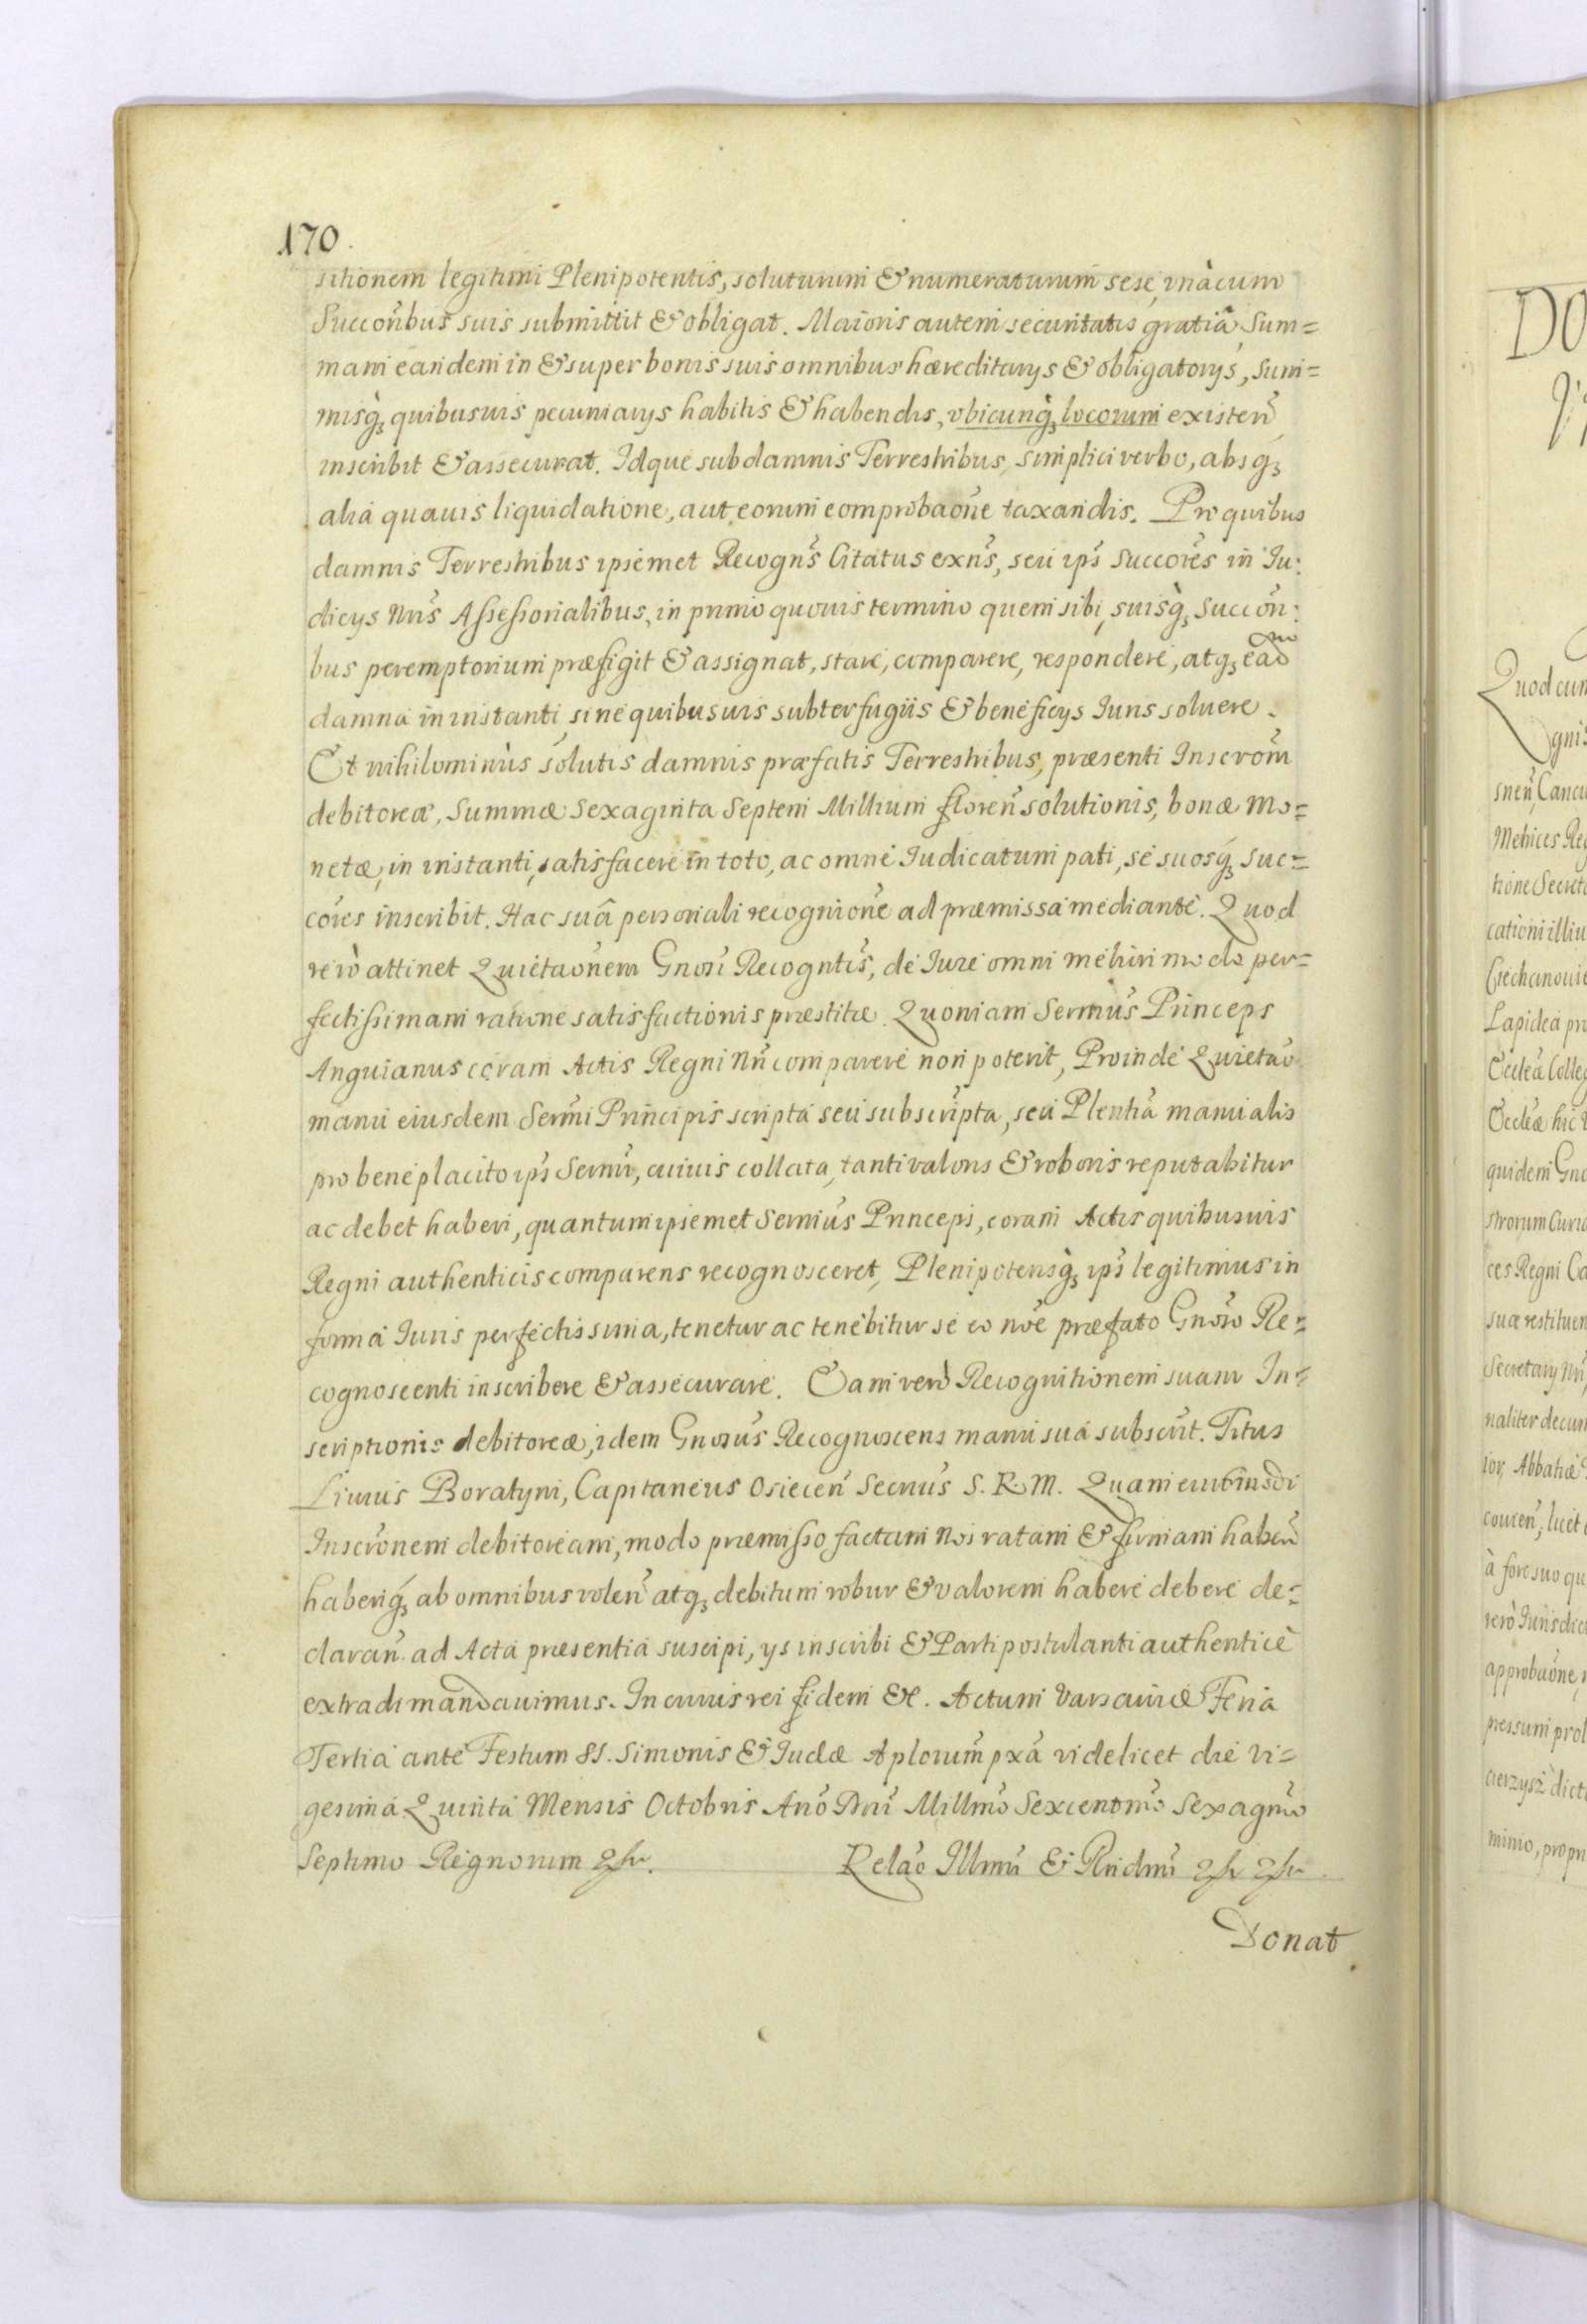 170.
sitionem legitimi Plenipotentis, soluturum & numeraturum sese, vnàcum
Succoribus suis submittit & obligat. Maioris autem securitatis gratiâ Sum=
mam eandem in & super bonis suis omnibus hæreditarys & obligatorys, sum=
misq́ꝫ quibusuis pecuniarys habitis & habendis, vbicunq́ꝫ locorum existen̄
inscribit & assecurat. Idque sub damnis Terrestribus, simplici verbo, absqꝫ
alia quauis liquidatione, aut eorum comprobaōne taxandis. Pro quibus
damnis Terrestribus ipsemet Recogn̄s Citatus exn̄s, seu ips̄ Succōres in Iu:
dicys Nrīs Assessorialibus, in primo quouis termino quem sibi, suisq́ꝫ Succōri:
bus peremptorium præfigit & assignat, stare, comparere, respondere, atqꝫ eād
damna in instanti, sine quibusuis subterfugiis & beneficys Iuris soluere.
Et nihilominùs solutis damnis præfatis Terrestribus, præsenti Inscrōni
debitoreæ, Summæ Sexaginta Septem Millium floren̄ solutionis, bonæ mo=
netæ, in instanti, satisfacere in toto, ac omne Iudicatum pati, se suosq́ꝫ suc=
cōres inscribit. Hac suâ personali recogniōne ad præmissa mediante. Quod
verò attinet Quietaōnem Gnosi Recogntīs, de Iure omni meliori modo per=
fectissimam ratione satisfactionis præstitæ. Quoniam Sermūs Princeps
Anguianus coram Actis Regni Nrī comparere non poterit, Proinde Quietāo
manu eiusdem Sermī Principis scripta seu subscripta, seu Plentīa manualis
pro beneplacito ips̄ Sermī, cuiuis collata, tanti valoris & roboris reputabitur
ac debet haberi, quantum ipsemet Sermūs Princeps, coram Actis quibusuis
Regni authenticis comparens recognosceret, Plenipotensq́ꝫ ips̄ legitimus in
forma Iuris perfectissima, tenetur ac tenebitur se eo nōe præfato Gnoso Re=
cognoscenti inscribere & assecurare. Eam verò Recognitionem suam In=
scriptionis debitoreæ, idem Gnosūs Recognoscens manu sua subscrīt. Titus
Liuius Boratyni, Capitaneus Osiecen̄ Secrīus S. R. M. Quam quidem
Inscrōnem debitoream, modo præmisso factam Nos ratam & firmam haben̄
haberiq́ꝫ ab omnibus volen̄ atqꝫ debitum robur & valorem habere debere de=
claran̄. ad Acta præsentia suscipi, ys inscribi & Parti postulanti authenticè
extradi mandauimus. In cuius rei fidem &c. Actum Varsauiæ Feria
Tertia ante Festum SS. Simonis & Iudæ Aplorum pxā videlicet die vi=
gesima Quinta Mensis Octobris Ano Dni Millmo Sexcentmo Sexagmo
Septimo Regnorum &c. Relāo Illmi & Rndmi &c &c.
Donat
DO
Quod cum
gnis
snen̄, Cancel
Mehices Reg
tione Secreta
cationi illiu
Ciechanouie
Lapidea pr
Eccleā Colleg
Eccleæ hic V
quidem Gno
strorum Curiæ
ces Regni Ca
suæ restituen
Secretary Nri
naliter decum
ior, Abbatiæ
conuen̄, licet
à foro suo qu
verò Iurisdict
approbaōne,
pressum prol
cierzysz dict
mino, propri